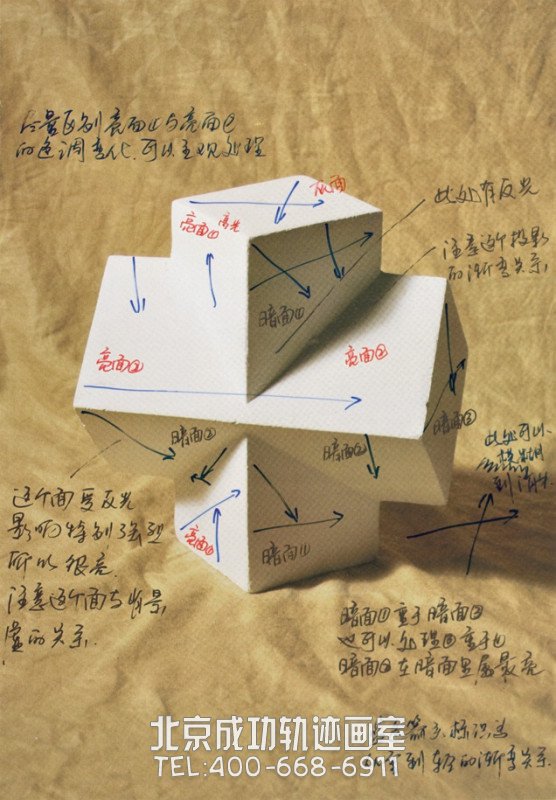 尽量区别亮面①与亮面②
的色调变化.可以主观处理
灰面
亮面① 高光
此处有反光
注意这个投影
的渐变关系.
暗面①
亮面②
亮面②
暗面②
暗面②
暗面③
此处可以
模糊
到
这个面受反光
影响特别强烈
所以很亮.
注意这个面与背景
的关系.
亮面①
暗面①
暗面①重于暗面③
也可以处理③重于①
暗面②在暗面里属最亮
箭头标识为
到轻的渐变关系.
北京成功轨迹画室
TEL:400-668-6911